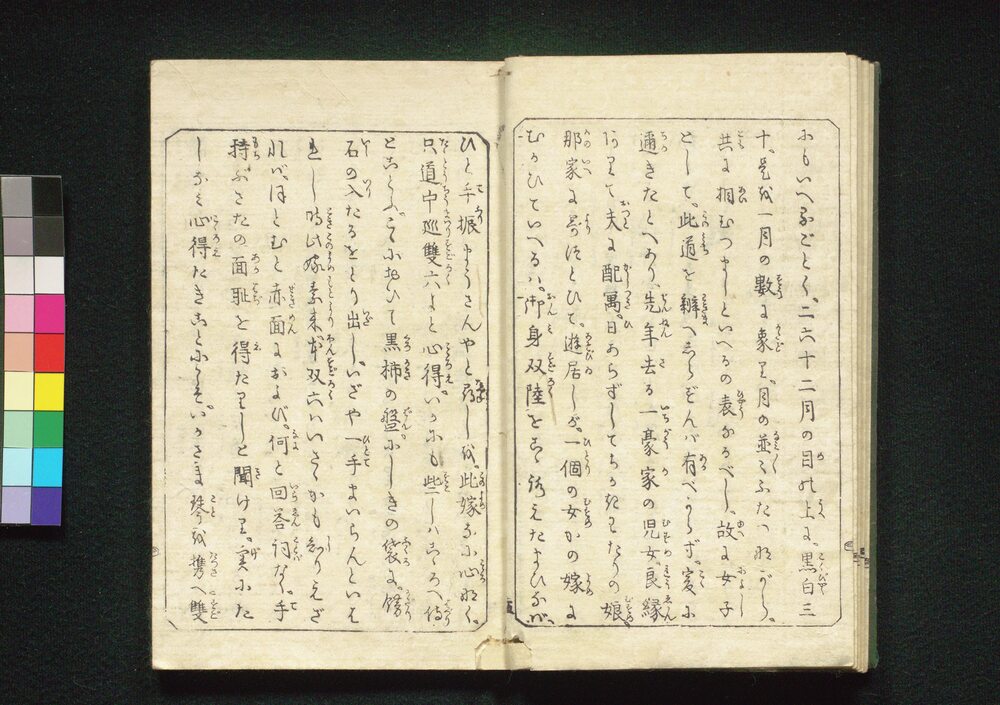 おもいへるごとく。二六十二月の目の上に。黒白三
十。是を一月の数に象り。月の並ふふたつながら。
共に相むつましといへるの表なるべし。故に女子
として。此道を辨へしらずんバ有べからず。爰に
邇きたとへあり。先年去る一豪家の児女良縁
ありて夫に配寓。日あらずしてちかきわたりの娘
那家に来つどひて。遊居しが。一個の女かの嫁に
むかひていへるハ。御身双陸をも覚えたまひなバ。
ひと手振まうさんやと尋しを。此嫁なに心なく。
只道中巡雙六よと心得。いかにも些しハこゝろへ侍
とこたふ。こゝにおいて黒柿の盤にしきの袋に。
石の入たるをとり出し。いざや一手まいらんといは
れし時此嫁素来本双六ハいさゝかも知りえざ
れバ。ほとむと赤面におよび。何と回答詞なく。手
持ぶさたの面耻を得たりしと聞けり。実にた
しなミ心得たきことにこそ。いかさま琴を携へ雙